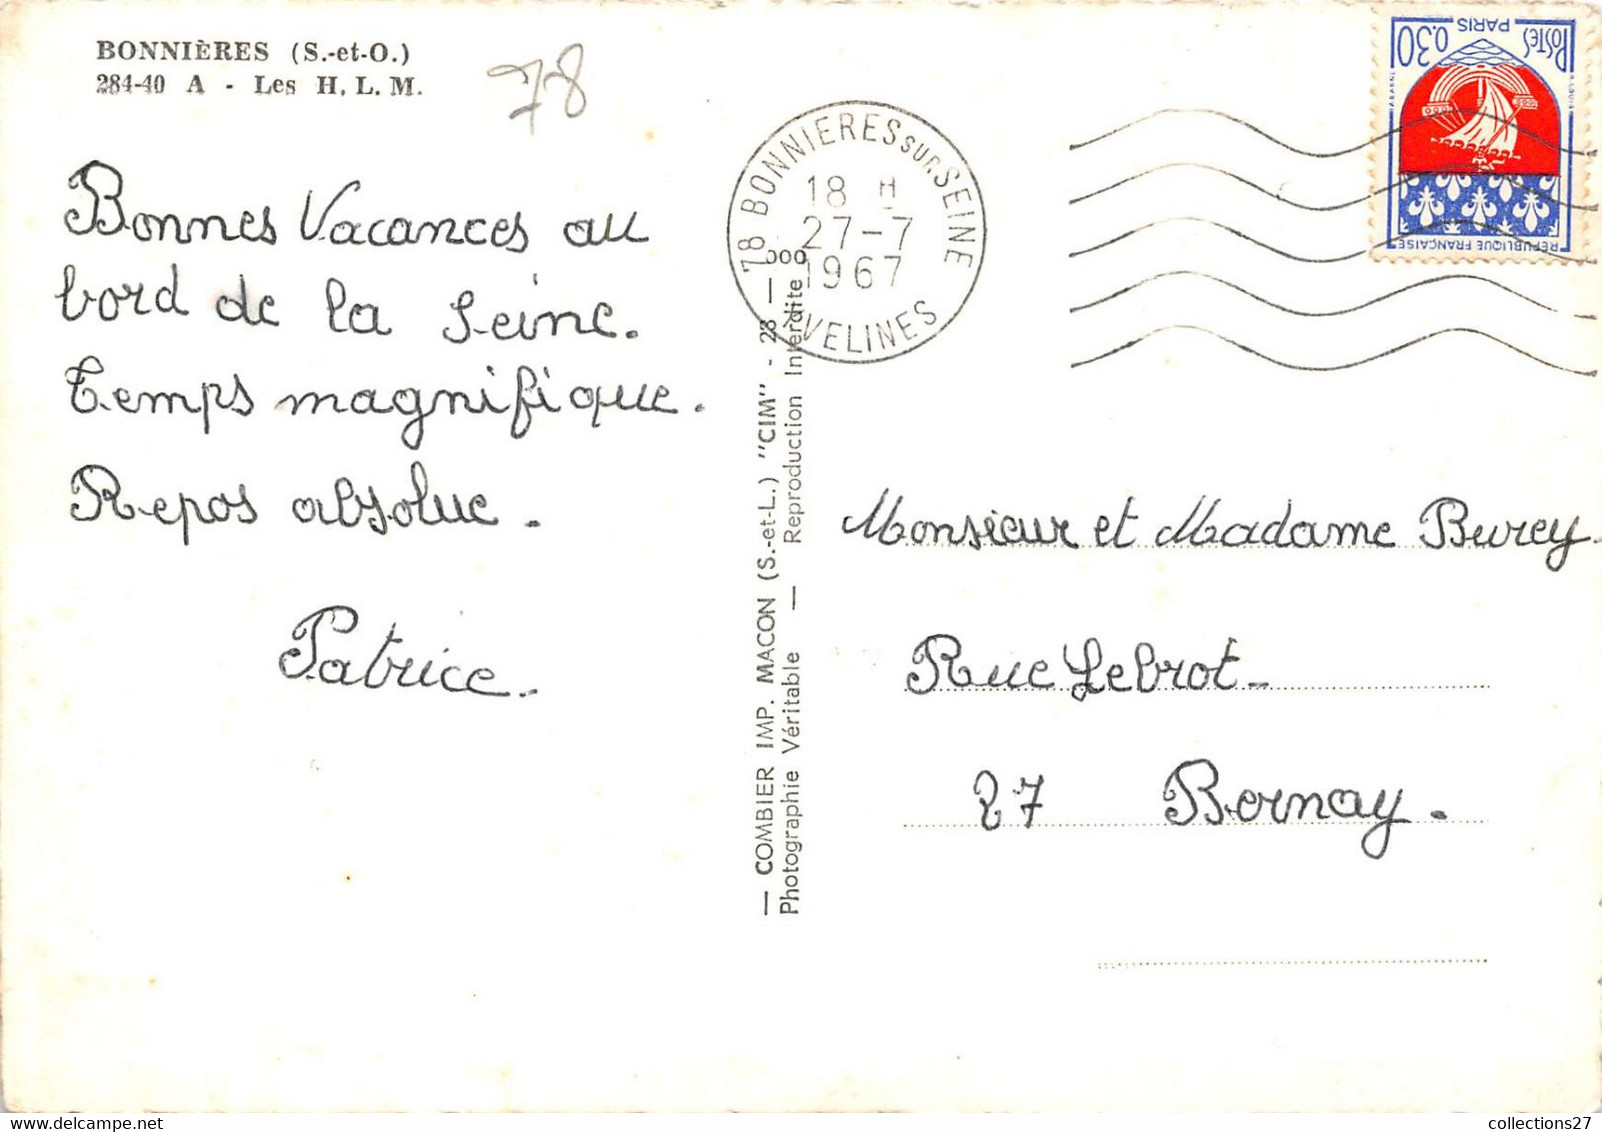 BONNIÈRES (S.-et-O.)
284-40 A - Les H. L. M.
78
Bonnes Vacances au
bord de la Seine.
Temps magnifique.
Repos absolue.
Patrice.
— COMBIER IMP. MACON (S.-et-L.) "CIM" - 28 —
Photographie Véritable — Reproduction Interdite
78 BONNIERES SUR SEINE
18 H
27-7
1967
YVELINES
0.30 POSTES
PARIS
REPUBLIQUE FRANÇAISE
Monsieur et Madame Burey.
Rue Lebrot-
27 Bernay.
collections27